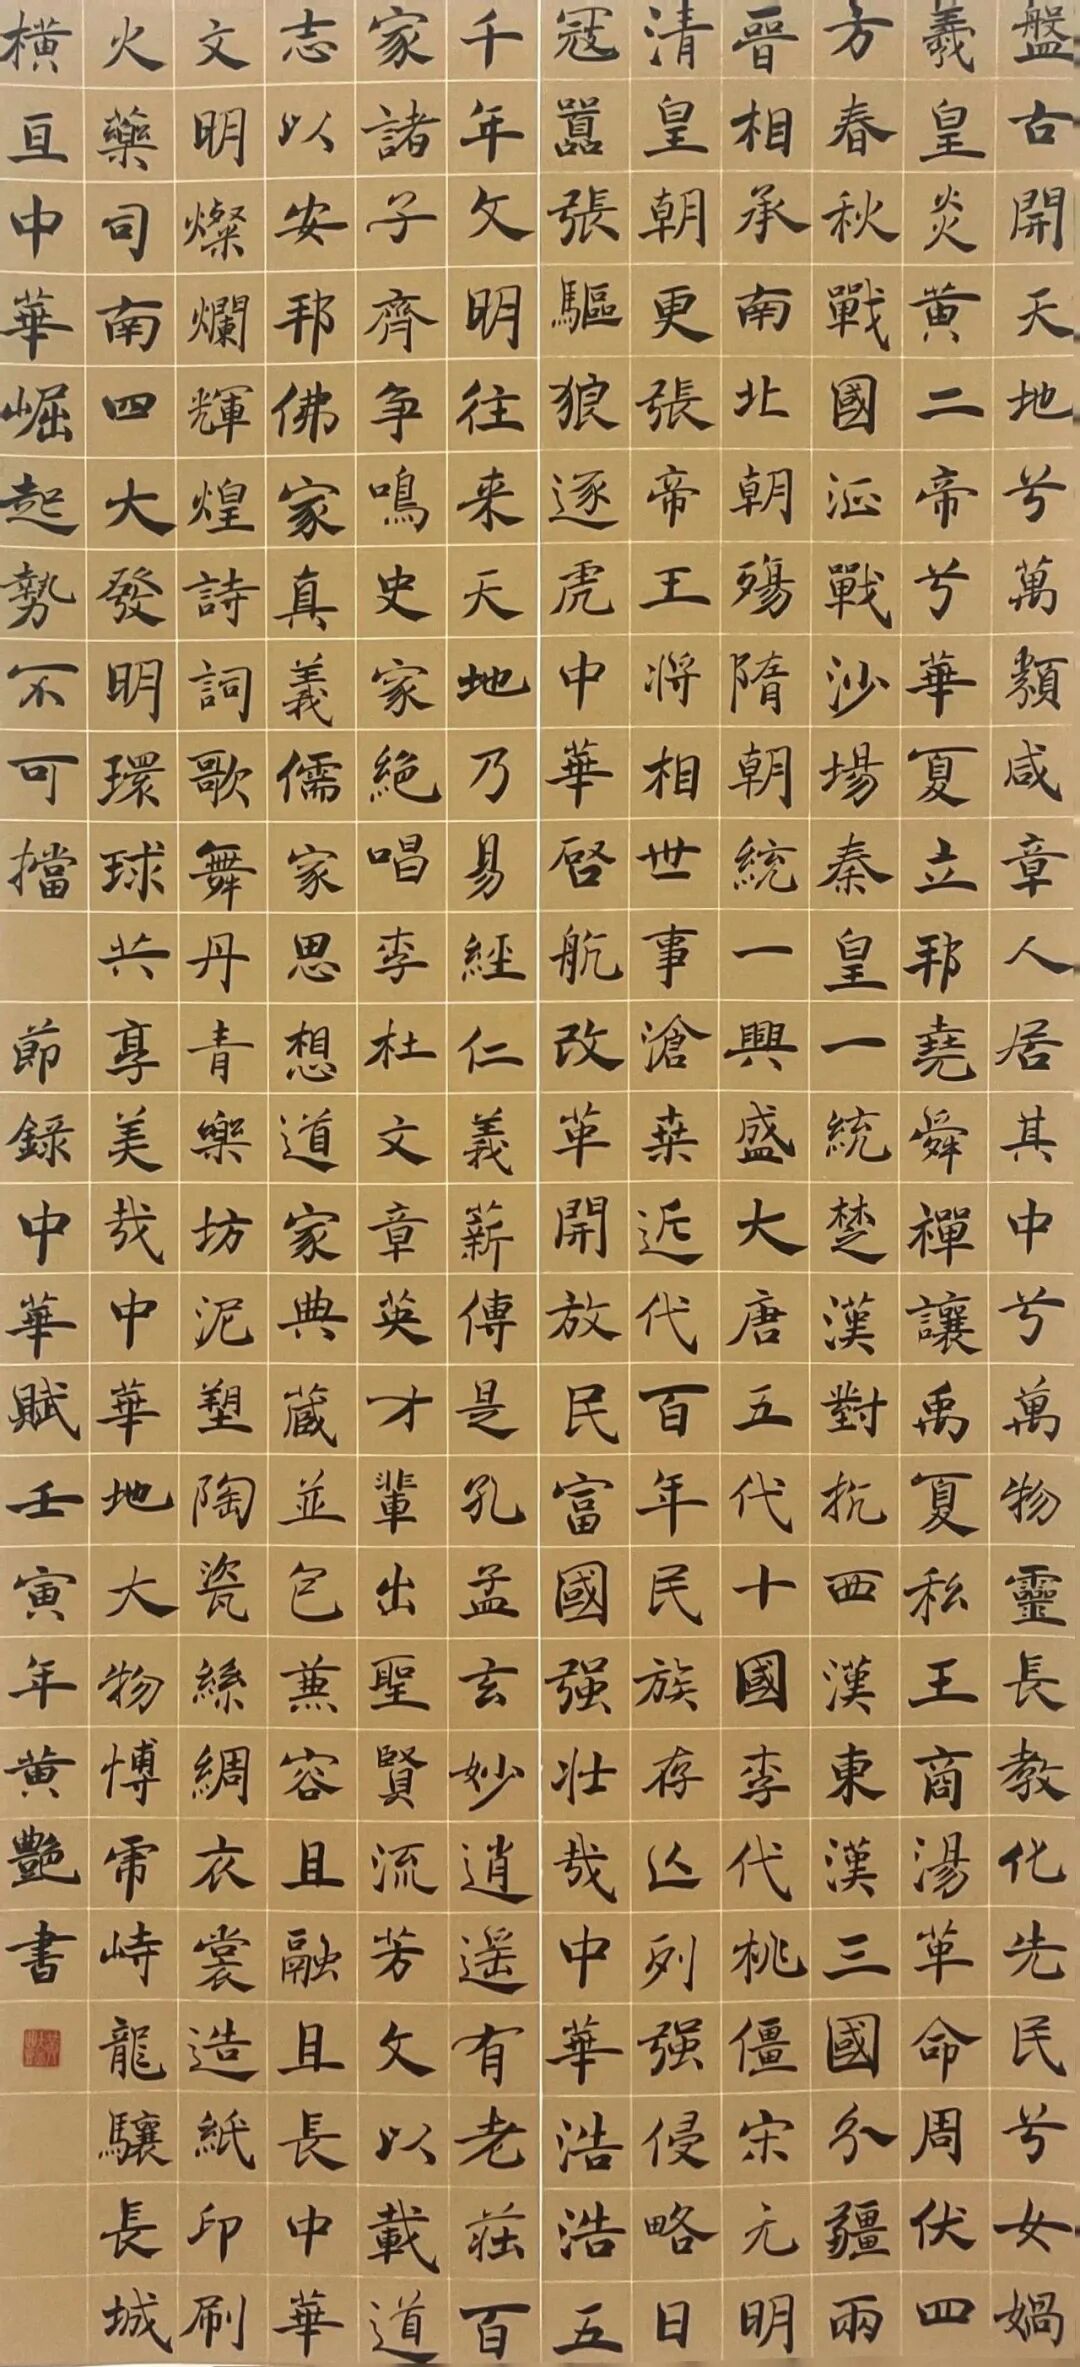 盤古開天地兮萬類咸章人居其中兮萬物靈長教化先民兮女媧
羲皇炎黃二帝兮華夏立邦堯舜禪讓禹夏私王商湯革命周伏四
方春秋戰國征戰沙場秦皇一統楚漢對抗西漢東漢三國分疆兩
晉相承南北朝殤隋朝統一興盛大唐五代十國李代桃僵宋元明
清皇朝更張帝王將相世事滄桑近代百年民族存亾列强侵略日
寇囂張驅狼逐虎中華啓航改革開放民富國强壯哉中華浩浩五
千年文明往来天地乃易經仁義薪傳是孔孟玄妙逍遥有老莊百
家諸子齊争鳴史家絶唱李杜文章英才輩出聖賢流芳文以載道
志以安邦佛家真義儒家思想道家典蔵並包兼容且融且長中華
文明燦爛輝煌詩詞歌舞丹青樂坊泥塑陶瓷絲綢衣裳造紙印刷
火藥司南四大發明環球共享美哉中華地大物博虎峙龍驤長城
橫亘中華崛起勢不可擋
節錄中華賦壬寅年黄艷書